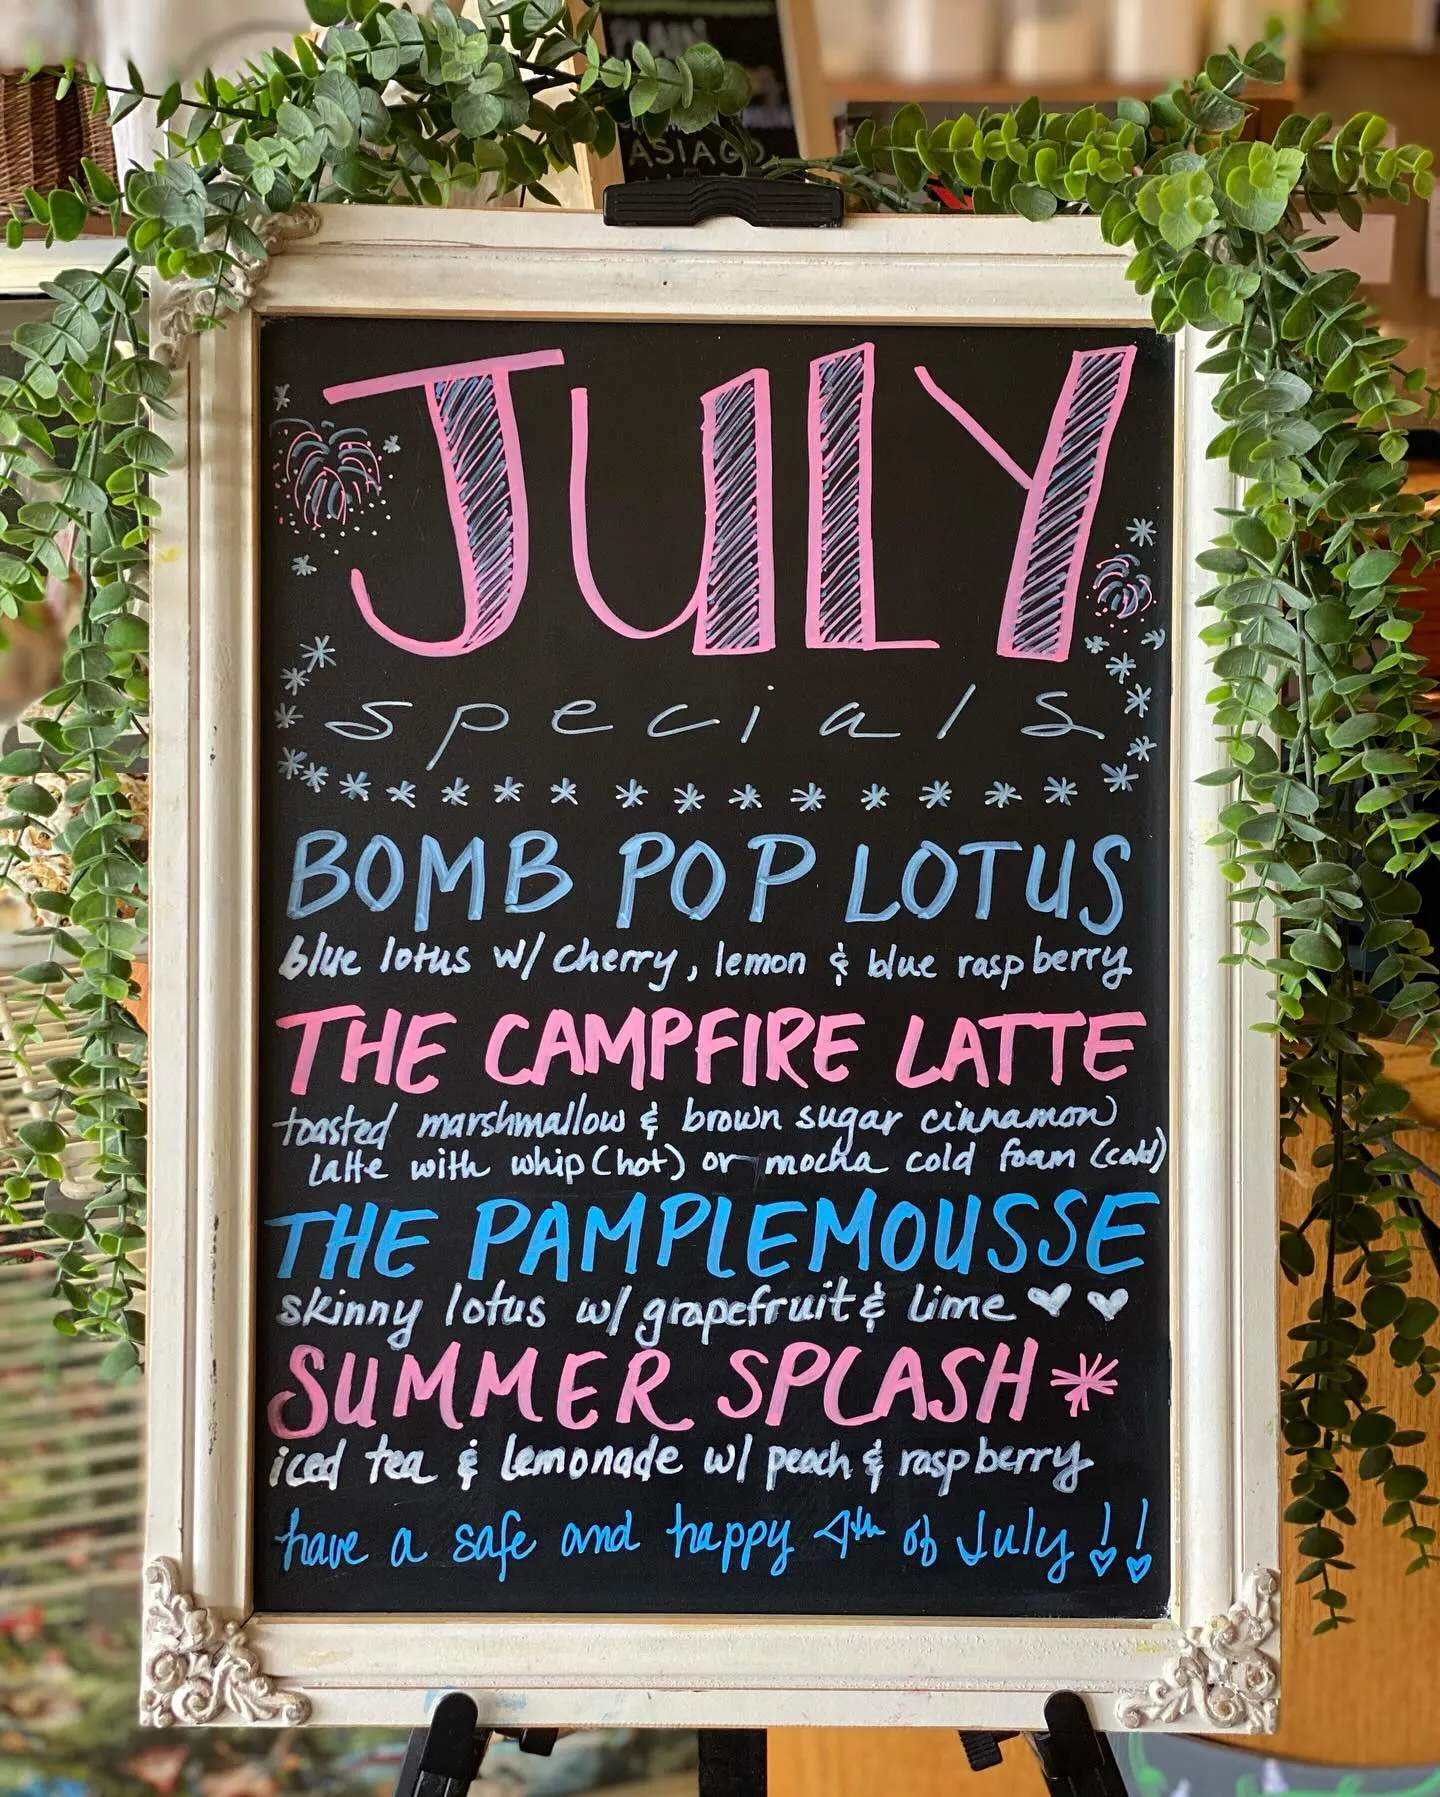 PLAIN
ASIAGO
JULY
specials
BOMB POP LOTUS
blue lotus w/ cherry, lemon & blue raspberry
THE CAMPFIRE LATTE
toasted marshmallow & brown sugar cinnamon
latte with whip (hot) or mocha cold foam (cold)
THE PAMPLEMOUSSE
skinny lotus w/ grapefruit & lime
SUMMER SPLASH *
iced tea & lemonade w/ peach & raspberry
have a safe and happy 4th of July!!